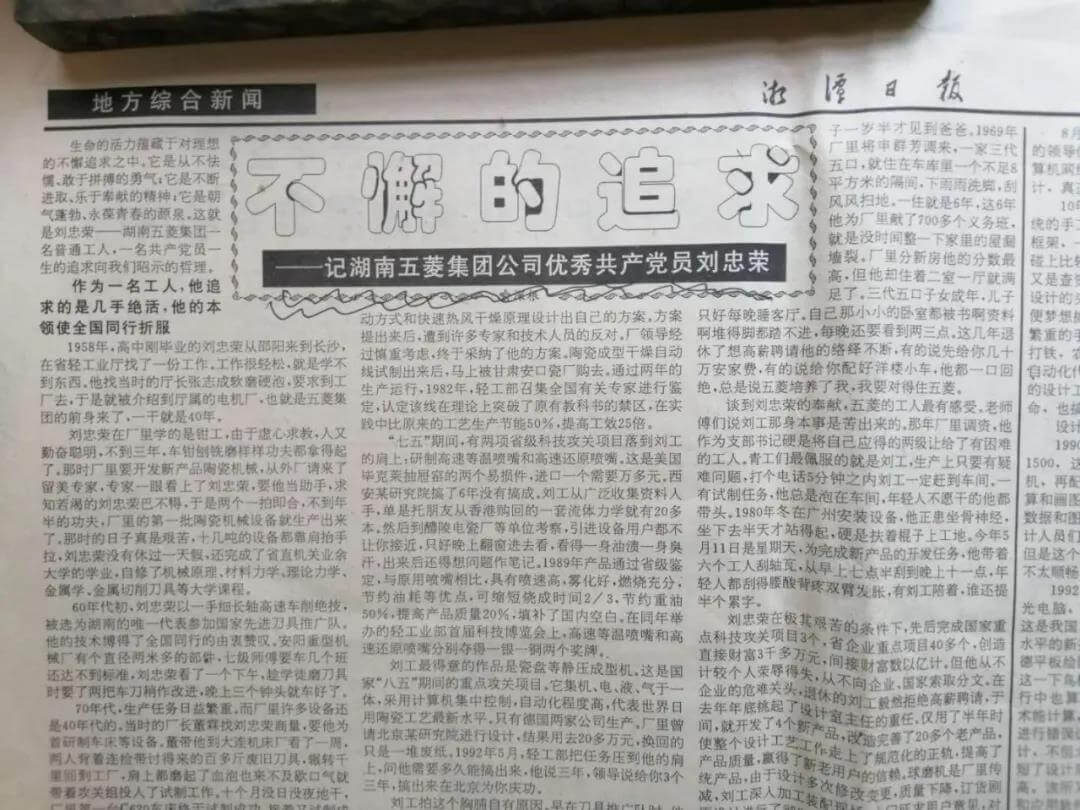 地方综合新闻
湘潭日报
不懈的追求
——记湖南五菱集团公司优秀共产党员刘忠荣
生命的活力蕴藏于对理想
的不懈追求之中,它是从不怯
懦、敢于拼搏的勇气;它是不断
进取、乐于奉献的精神;它是朝
气蓬勃,永葆青春的源泉。这就
是刘忠荣——湖南五菱集团一
名普通工人,一名共产党员一
生的追求向我们昭示的哲理。
作为一名工人,他追
求的是几手绝活,他的本
领使全国同行折服
1958年,高中刚毕业的刘忠荣从邵阳来到长沙,
在省轻工业厅找了一份工作。工作很轻松,就是学不
到东西。他找当时的厅长张志成软磨硬泡,要求到工
厂去,于是就被介绍到厅属的电机厂,也就是五菱集
团的前身来了,一干就是40年。
刘忠荣在厂里学的是钳工,由于虚心求教,人又
勤奋聪明,不到三年,车钳刨铣磨样样功夫都拿得起
了。那时厂里要开发新产品陶瓷机械,从外厂请来了
留美专家,专家一眼看上了刘忠荣,要他当助手,求
知若渴的刘忠荣巴不得,于是两个一拍即合,不到年
半的功夫,厂里的第一批陶瓷机械设备就生产出来
了。那时的日子真是艰苦,十几吨的设备都靠肩抬手
拉,刘忠荣没有休过一天假,还完成了省直机关业余
大学的学业,自修了机械原理、材料力学、理论力学、
金属学、金属切削刀具等大学课程。
60年代初,刘忠荣以一手细长轴高速车削绝技,
被选为湖南的唯一代表参加国家先进刀具推广队。
他的技术博得了全国同行的由衷赞叹。安阳重型机
械厂有个直径两米多的部件,七级师傅要车几个班
还达不到标准,刘忠荣看了一个下午,趁学徒磨刀具
时要了两把车刀稍作改进,晚上三个钟头就车好了。
70年代,生产任务日益繁重,而厂里许多设备还
是40年代的。当时的厂长董霖找刘忠荣商量,要他为
首研制车床等设备。董带他到大连机床厂看了一周,
两人背着连捡带讨得来的百多斤废旧刀具,辗转千
里回到工厂,肩上都磨起了血泡也来不及歇口气就
带着攻关组投入了试制工作。十个月没日没夜地干,
厂里第一台C620车床终于试制成功,接着又试制成
动方式和快速热风干燥原理设计出自己的方案,方案
提出来后,遭到许多专家和技术人员的反对。厂领导经
过慎重考虑,终于采纳了他的方案。陶瓷成型干燥自动
线试制出来后,马上被甘肃安口瓷厂购去。通过两年的
生产运行,1982年,轻工部召集全国有关专家进行鉴
定,认定该线在理论上突破了原有教科书的禁区,在实
践中比原来的工艺生产节能50%,提高工效25倍。
“七五”期间,有两项省级科技攻关项目落到刘工
的肩上:研制高速等温喷嘴和高速还原喷嘴。这是美国
毕克莱抽屉窑的两个易损件,进口一个需要万多元。西
安某研究院搞了6年没有搞成。刘工从广泛收集资料入
手,单是托朋友从香港购回的一套流体力学就有20多
本。然后到醴陵电瓷厂等单位考察,引进设备用户都不
让你接近,只好晚上翻窗进去看,看得一身油渍一身臭
汗,出来后还得想问题作笔记。1989年产品通过省级鉴
定,与原用喷嘴相比,具有喷速高,雾化好,燃烧充分,
节约油耗等优点,可缩短烧成时间2/3,节约重油
50%,提高产品质量20%,填补了国内空白。在同年举
办的轻工业部首届科技博览会上,高速等温喷嘴和高
速还原喷嘴分别夺得一银一铜两个奖牌。
刘工最得意的作品是瓷盘等静压成型机。这是国
家“八五”期间的重点攻关项目,它集机、电、液、气于一
体,采用计算机集中控制,自动化程度高,代表世界日
用陶瓷工艺最新水平,只有德国两家公司生产。厂里曾
请北京某研究院进行设计,结果用去20多万元,换回的
只是一堆废纸。1992年5月,轻工部把任务压到他的肩
上,问他需要多久能搞出来,他说三年,领导说给你3个
三年,搞出来在北京为你庆功。
刘工拍这个胸脯自有原因。早在刀具推广队时,他
子一岁半才见到爸爸。1969年
厂里将申群芳调来,一家三代
五口,就住在车库里一个不足8
平方米的隔间,下雨雨洗脚,刮
风风扫地。一住就是6年,这6年
他为厂里献了700多个义务班,
就是没时间整一下家里的屋漏
墙裂。厂里分新房他的分数最
高,但他却住着二室一厅就满
足了。三代五口子女成年,儿子
只好每晚睡客厅,自己那小小的卧室都被书啊资料
啊堆得脚都踏不进,每晚还要看到两三点。这几年退
休了想高薪聘请他的络绎不断,有的说先给你几十
万安家费,有的说给你配好洋楼小车,他都一口回
绝,总是说五菱培养了我,我要对得住五菱。
谈到刘忠荣的奉献,五菱的工人最有感受。老师
傅们说刘工那身本事是苦出来的。那年厂里调资,他
作为支部书记硬是将自己应得的两级让给了有困难
的工人。青工们最佩服的就是刘工,生产上只要有疑
难问题,打个电话5分钟之内刘工一定赶到车间。一
有试制任务,他总是泡在车间,年轻人不愿干的他都
带头。1980年冬在广州安装设备,他正患坐骨神经,
坐下去半天才站得起,硬是扶着棍子上工地。今年5
月11日是星期天,为完成新产品的开发任务,他带着
六个工人刮轴瓦,从早上七点半刮到晚上十一点,年
轻人都刮得腰酸背疼双臂发胀,有刘工陪着,谁还提
半个累字。
刘忠荣在极其艰苦的条件下,先后完成国家重
点科技攻关项目3个,省企业重点项目40多个,创造
直接财富3千多万元,间接财富数以亿计。但他从不
计较个人荣辱得失,从不向企业、国家索取分文。在
企业的危难关头,退休的刘工毅然拒绝高薪聘请,于
去年年底挑起了设计室主任的重任,仅用了半年时
间,就开发了4个新产品,改造完善了20多个老产品,
使整个设计工艺工作走上了规范化的正轨,提高了
产品质量,赢得了新老用户的信赖。球磨机是厂里传
统产品,由于设计多次修改变动,质量下降,订货剧
减,刘工深入加工装配现场
8月
的领导
算机演
计。真
10
统的手
框架、
碰上比较
又是查资
设计的头
便梦想能
繁重的手
打铁、农
自动化代
的设计工
命,也搞
设计
1990
1500,这
机,再配
算和画图
数据和图
计人员们
但是这个
不太顺畅
1992
光电脑,
这是我国
水平的新
德平板绘
这一下鸟
行中也算
术能计算
进行错误
计、不但
短了设计